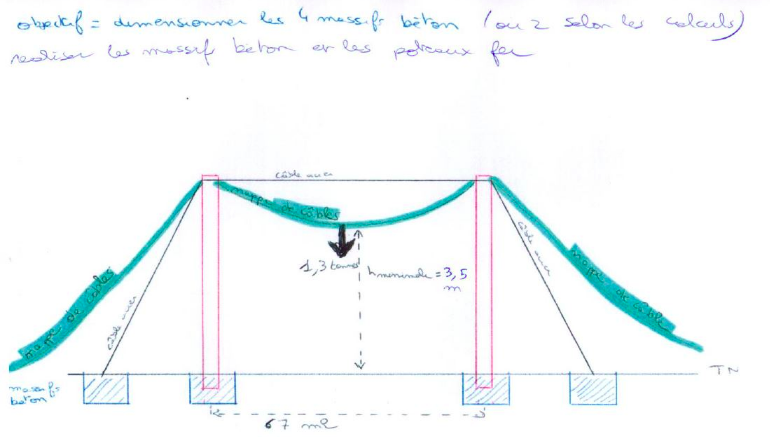 objectif = dimensionner les 4 massifs béton (ou 2 selon les calculs)
realiser les massifs beton et les poteaux fer
câble
nappe de câbles
1,3 tonnes
h minimale = 3,5
m
nappe de câbles
câble
câble
nappe de câbles
TN
massifs
beton
67 ml